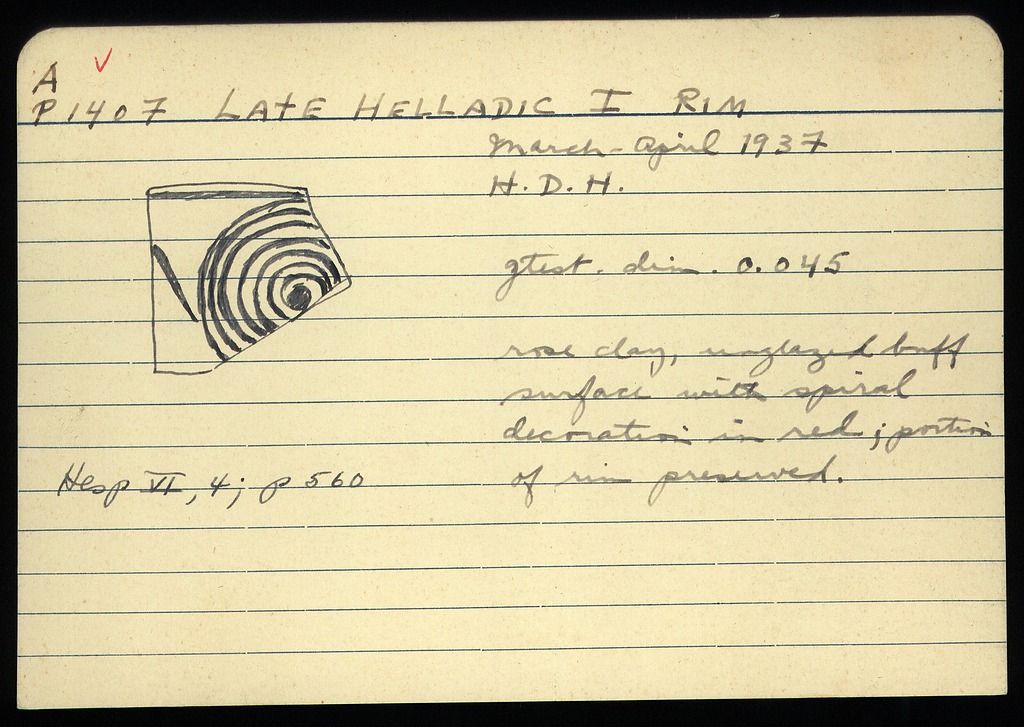 A
P 1407 LATE HELLADIC I RIM
March-April 1937
H. D. H.
gtest. dim. 0.045
rose clay, unglazed buff
surface with spiral
decoration in red; portion
of rim preserved.
Hesp VI, 4; p 560